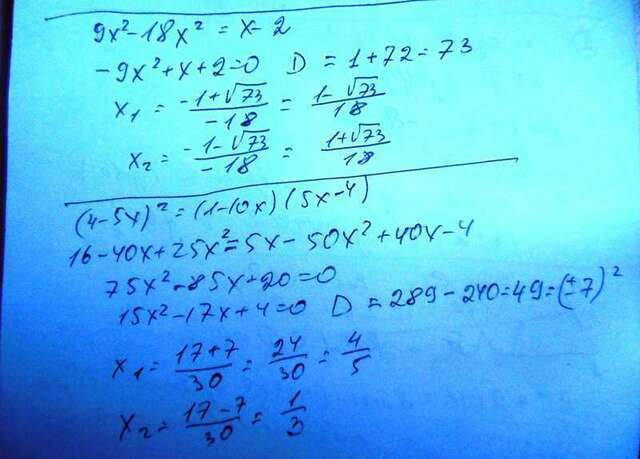 9x² - 18x² = x - 2
-9x² + x + 2 = 0 D = 1 + 72 = 73
x₁ = (-1+√73)/(-18) = (1-√73)/18
x₂ = (-1-√73)/(-18) = (1+√73)/18
(4-5x)² = (1-10x)(5x-4)
16 - 40x + 25x² = 5x - 50x² + 40x - 4
75x² - 85x + 20 = 0
15x² - 17x + 4 = 0 D = 289 - 240 = 49 = (±7)²
x₁ = (17+7)/30 = 24/30 = 4/5
x₂ = (17-7)/30 = 1/3